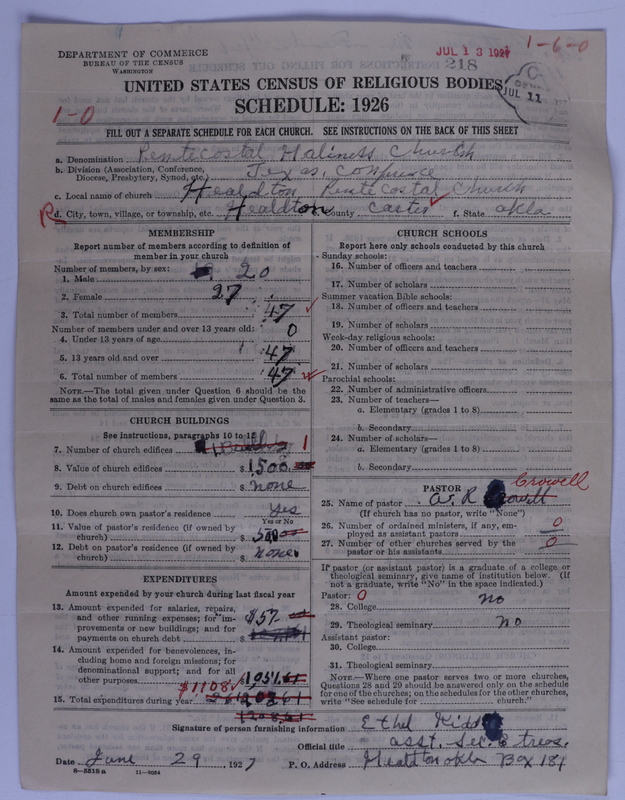 DEPARTMENT OF COMMERCE
BUREAU OF THE CENSUS
WASHINGTON
JUL 13 1927
1-6-0
218
JUL 11
UNITED STATES CENSUS OF RELIGIOUS BODIES
SCHEDULE: 1926
1-0
FILL OUT A SEPARATE SCHEDULE FOR EACH CHURCH. SEE INSTRUCTIONS ON THE BACK OF THIS SHEET
a. Denomination Pentecostal Haliness Church
b. Division (Association, Conference, Diocese, Presbytery, Synod, etc.) Texas, Confrence
c. Local name of church Healdton Pentecostal Church
R d. City, town, village, or township, etc. Healdton e. County Carter f. State Okla
MEMBERSHIP
Report number of members according to definition of
member in your church
Number of members, by sex:
1. Male 20
2. Female 27
3. Total number of members 47
Number of members under and over 13 years old:
4. Under 13 years of age 0
5. 13 years old and over 47
6. Total number of members 47
NOTE.—The total given under Question 6 should be
same as the total of males and females given under Question 3.
CHURCH BUILDINGS
See instructions, paragraphs 10 to 12
7. Number of church edifices 1
8. Value of church edifices $1500
9. Debt on church edifices $ none
10. Does church own pastor's residence? yes
Yes or No
11. Value of pastor's residence (if owned by
church) $ 500
12. Debt on pastor's residence (if owned by
church) $ none
EXPENDITURES
Amount expended by your church during last fiscal year
13. Amount expended for salaries, repairs,
and other running expenses; for improvements
or new buildings; and for
payments on church debt $57
14. Amount expended for benevolences, including
home and foreign missions; for
denominational support; and for all
other purposes $1051.61
$1108
15. Total expenditures during year
CHURCH SCHOOLS
Report here only schools conducted by this church
Sunday schools:
16. Number of officers and teachers
17. Number of scholars
Summer vacation Bible schools:
18. Number of officers and teachers
19. Number of scholars
Week-day religious schools:
20. Number of officers and teachers
21. Number of scholars
Parochial schools:
22. Number of administrative officers
23. Number of teachers—
a. Elementary (grades 1 to 8)
b. Secondary
24. Number of scholars—
a. Elementary (grades 1 to 8)
b. Secondary
PASTOR
Crowell
25. Name of pastor
(If church has no pastor, write "None")
26. Number of ordained ministers, if any, employed
as assistant pastors 0
27. Number of other churches served by the
pastor or his assistants 0
If pastor (or assistant pastor) is a graduate of a college or
theological seminary, give name of institution below. (If
not a graduate, write "No" in the space indicated.)
Pastor: 0
28. College no
29. Theological seminary no
Assistant pastor:
30. College
31. Theological seminary
NOTE.—Where one pastor serves two or more churches,
Questions 28 and 29 should be answered only on the schedule
for one of the churches; on the schedules for the other churches,
write "See schedule for church."
Signature of person furnishing information Ethel Kidd
Official title asst. Sec. & treas.
Date June 29, 1927 P. O. Address Healdton okla Box 181
8-5518a 11-9054